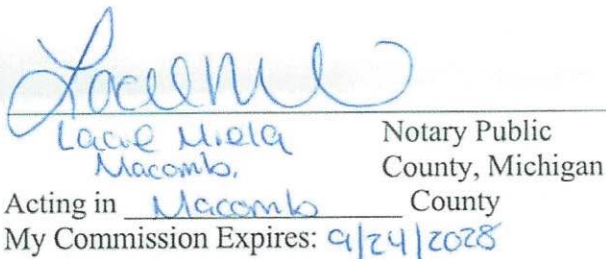 Lacie Miela Notary Public
Macomb, County, Michigan
Acting in Macomb County
My Commission Expires: 9/24/2028